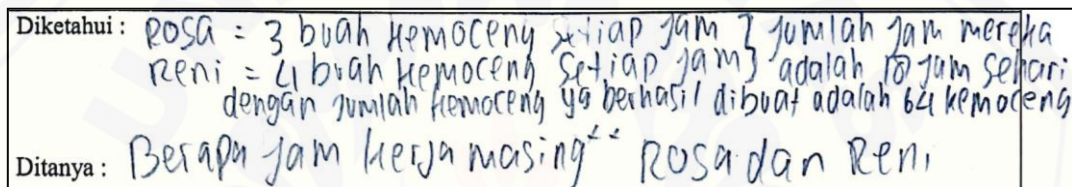 Diketahui : Rosa = 3 buah kemoceng setiap jam } jumlah jam mereka
Reni = 4 buah kemoceng setiap jam } adalah 18 jam sehari
dengan jumlah kemoceng yg berhasil dibuat adalah 64 kemoceng
Ditanya : Berapa jam kerja masing" Rosa dan Reni